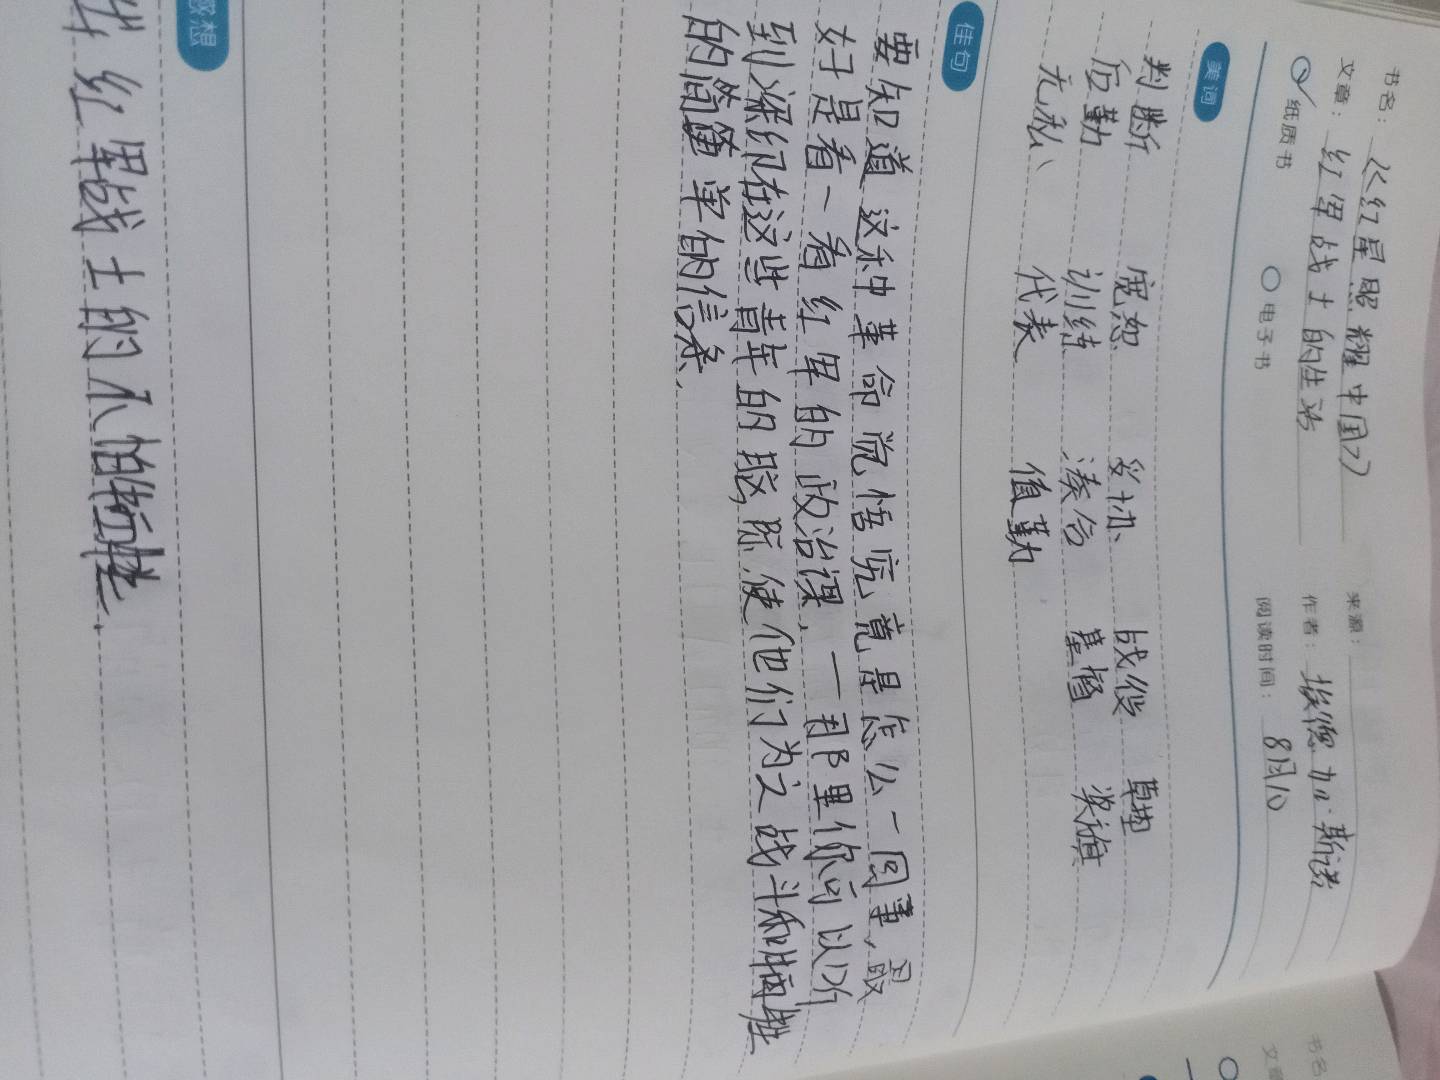 书名：《红星照耀中国》 来源：
文章：红军战士的生活 作者：埃德加·斯诺
纸质书 电子书 阅读时间：8月10
美词
判断 宽恕 妥协 战役 草垫
后勤 训练 凑合 基督 奖旗
无私 代表 值勤
佳句
要知道这种革命觉悟究竟是怎么一回事，最
好是看一看红军的政治课，一那里你可以听
到深印在这些青年的脑际，使他们为之战斗和牺牲
的简单的信条，
感想
红军战士的不怕牺牲.
书名
文章